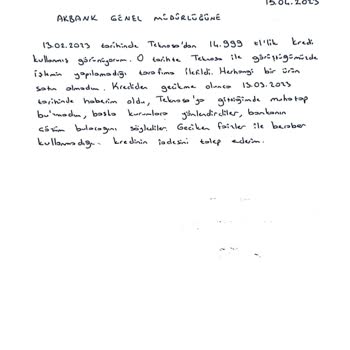 15.04.2023
AKBANK GENEL MÜDÜRLÜĞÜNE
13.02.2023 tarihinde Teknosa'dan 14.999 tl'lik kredi
kullanmış görünüyorum. O tarihte Teknosa ile görüştüğümüzde
işlemin yapılamadığı tarafıma iletildi. Herhangi bir ürün
satın almadım. Krediden gecikme olunca 13.03.2023
tarihinde haberim oldu, Teknosa'ya gittiğimde muhatap
bulmadım, başka kurumlara yönlendirdiler, bankanın
çözüm bulacağını söylediler. Geciken faizler ile beraber
kullanmadığım kredinin iadesini talep ederim.